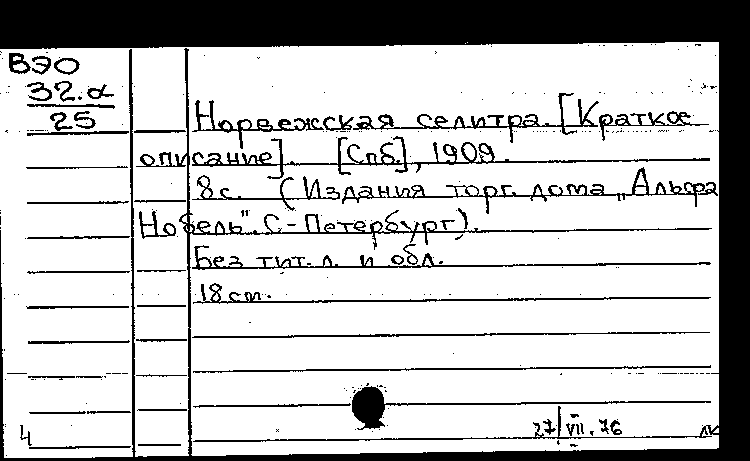 ВЭО
32.α
25
Норвежская селитра. [Краткое
описание]. [Спб.], 1909.
8с. (Издания торг. дома „Альфа
Нобель". С-Петербург).
Без тит. л. и обл.
18 см.
4
27/VII.76 лк